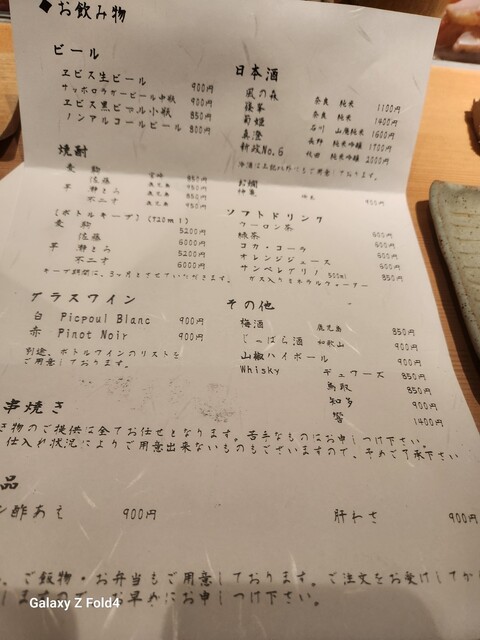 ◆お飲み物
ビール
ヱビス生ビール 900円
サッポロラガービール中瓶 900円
ヱビス黒ビール小瓶 850円
ノンアルコールビール 800円
日本酒
風の森 奈良 純米 1100円
篠峯 奈良 純米 1400円
菊姫 石川 山廃純米 1600円
真澄 長野 純米吟醸 1700円
新政No.6 秋田 純米吟醸 2000円
冷酒は上記以外にもご用意しております。
焼酎
麦
佐藤 鹿児島 950円
芋 鹿児島 950円
不二才 鹿児島 950円
お燗
[ボトルキープ](720ml)
麦 5200円
佐藤 6000円
芋 5200円
不二才 6000円
キープ期間は、3ヶ月とさせていただきます。
ソフトドリンク
ウーロン茶 600円
緑茶 600円
コカ・コーラ 600円
オレンジジュース 600円
サンペレグリノ 500ml ガス入りミネラルウォーター 850円
グラスワイン
白 Picpoul Blanc 900円
赤 Pinot Noir 900円
別途、ボトルワインのリストを
ご用意しております。
その他
梅酒 鹿児島 850円
じゃばら酒 和歌山 900円
山椒ハイボール 900円
Whisky デュワーズ 850円
鳥取 850円
知多 900円
響 1400円
串焼き
き物のご提供は全てお任せとなります。苦手なものはお申しつけ下さい。
仕入れ状況によりご用意出来ないものもございますので、予めご了承下さい
品
酢あえ 900円
肝わさ 900円
、ご飯物・お弁当もご用意しております。ご注文をお受けしてか
しますので、お早めにお申しつけ下さい。
Galaxy Z Fold4